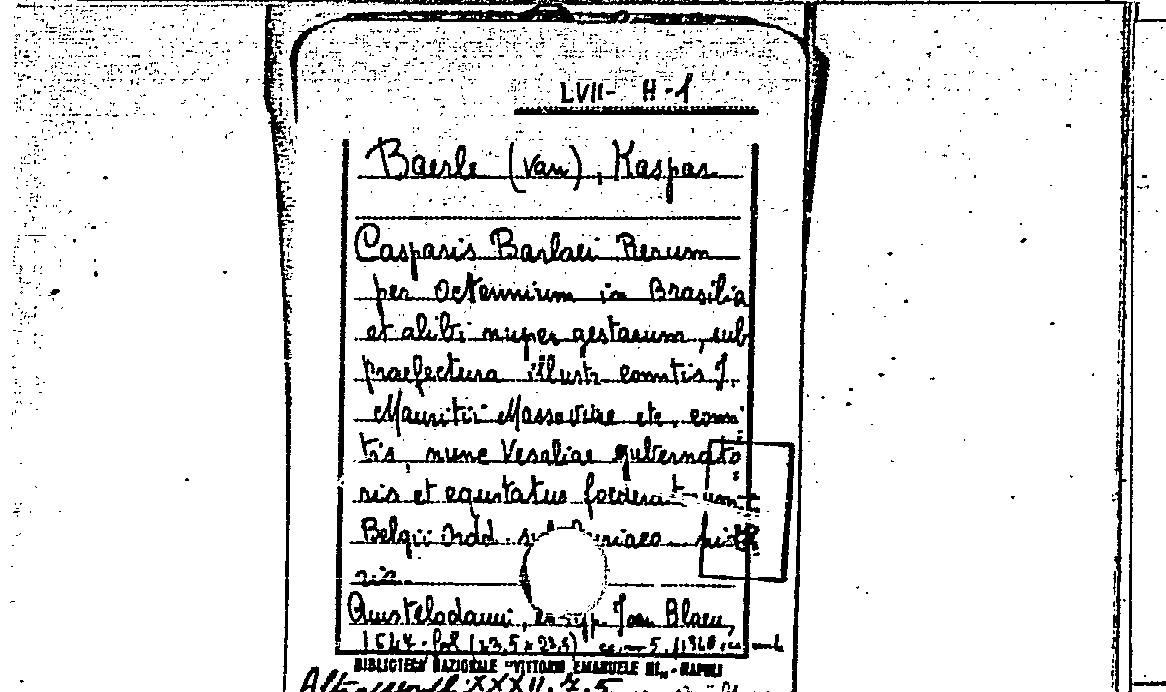 LVII- H-1
Baerle (van), Kaspar
Casparis Barlaei Rerum
per octennium in Brasilia
et alibi nuper gestarum, sub
praefectura illustr comitis J.
Mauritii Nassoviae etc. comi
tis, nunc Vesaliae gubernato
ris et equitatus foederat um
Belgii Ordd. sub Auriaco histo
ria.
Amstelodami, ex typ. Joan Blaeu,
1647. fol
BIBLIOTECA NAZIONALE "VITTORIO EMANUELE III" - NAPOLI
XXXII. Z. 5